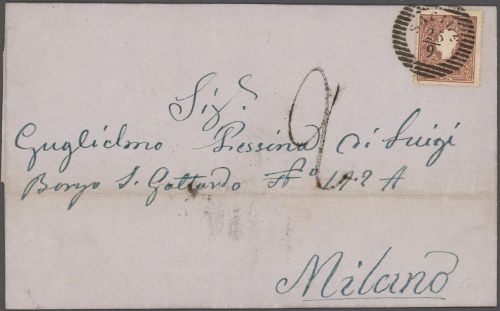 Sig.r
Guglielmo Pessina di Luigi
Borgo S. Gottardo No 142 A
Milano
2
23
9